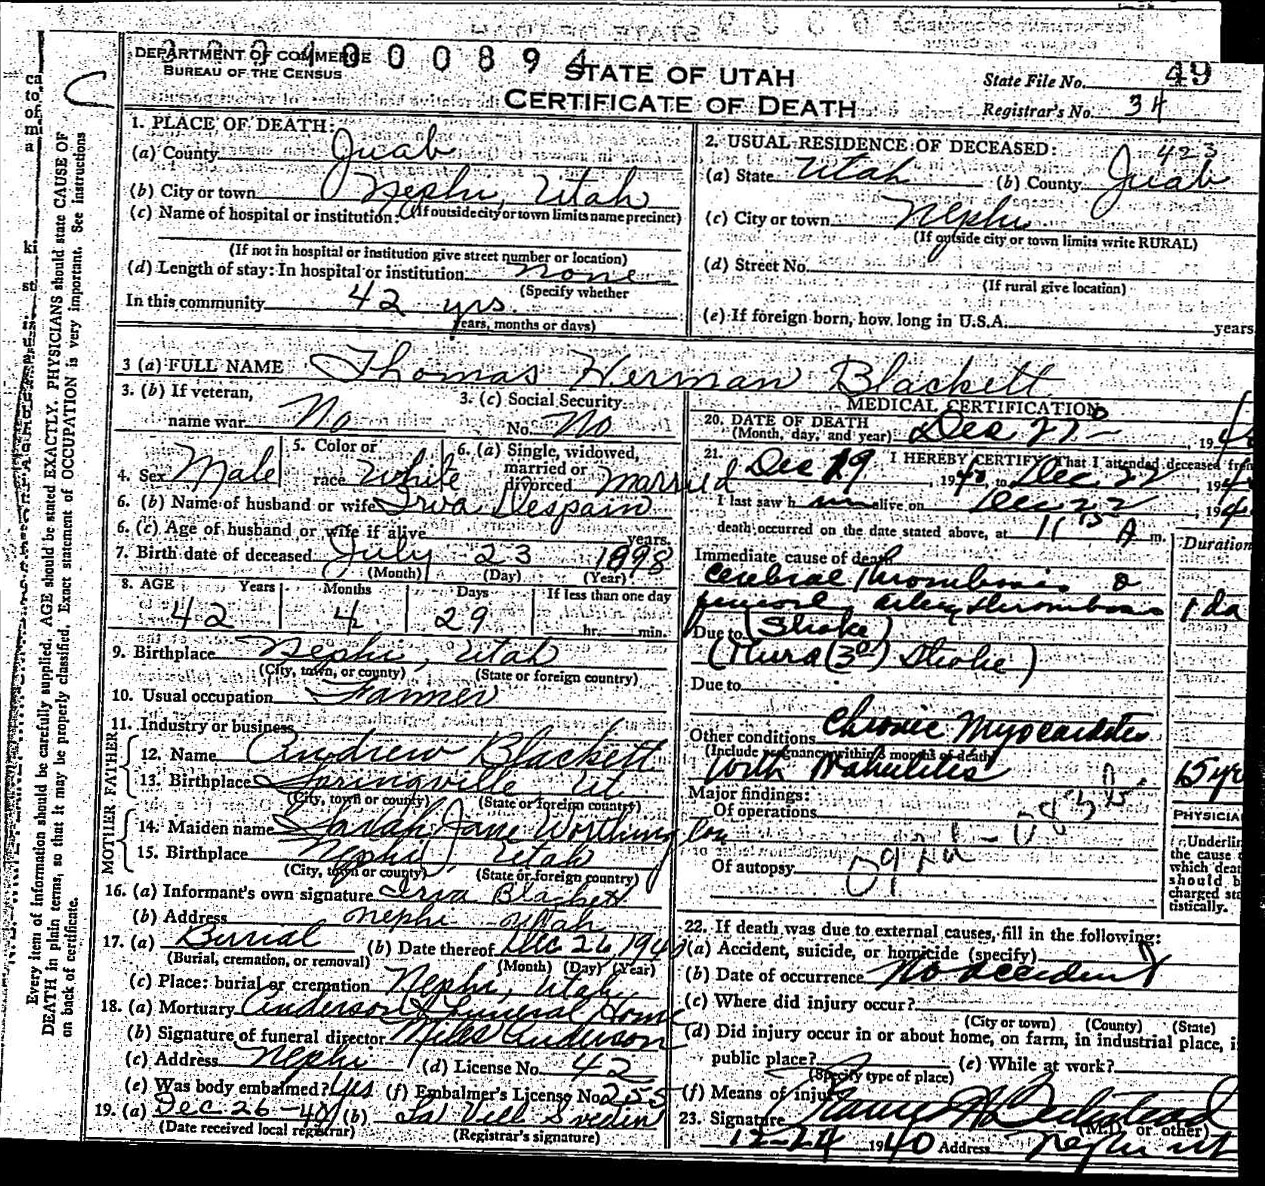 DEPARTMENT OF COMMERCE
BUREAU OF THE CENSUS
0 0 0 8 9 4
STATE OF UTAH
CERTIFICATE OF DEATH
State File No. 49
Registrar's No. 34
1. PLACE OF DEATH:
(a) County Juab
(b) City or town Nephi, Utah
(If outside city or town limits name precinct)
(c) Name of hospital or institution:
(If not in hospital or institution give street number or location)
(d) Length of stay: In hospital or institution none
(Specify whether
In this community 42 yrs.
years, months or days)
2. USUAL RESIDENCE OF DECEASED: 423
(a) State Utah (b) County Juab
(c) City or town Nephi
(If outside city or town limits write RURAL)
(d) Street No.
(If rural give location)
(e) If foreign born, how long in U.S.A. years
3 (a) FULL NAME Thomas Herman Blackett
3. (b) If veteran, name war No
3. (c) Social Security No. No
4. Sex Male
5. Color or race White
6. (a) Single, widowed, married or divorced Married
6. (b) Name of husband or wife Irva Despain
6. (c) Age of husband or wife if alive years.
7. Birth date of deceased July 23 1898
(Month) (Day) (Year)
8. AGE Years Months Days If less than one day
42 4 29 hr. min.
9. Birthplace Nephi, Utah
(City, town, or county) (State or foreign country)
10. Usual occupation Farmer
11. Industry or business
FATHER
12. Name Andrew Blackett
13. Birthplace Springville Ut
(City, town or county) (State or foreign country)
MOTHER
14. Maiden name Sarah Jane Worthington
15. Birthplace Nephi, Utah
(City, town or county) (State or foreign country)
16. (a) Informant's own signature Irva Blackett
(b) Address Nephi Utah
17. (a) Burial (b) Date thereof Dec 26, 1940
(Burial, cremation, or removal) (Month) (Day) (Year)
(c) Place: burial or cremation Nephi, Utah
18. (a) Mortuary Anderson Funeral Home
(b) Signature of funeral director Miles Anderson
(c) Address Nephi (d) License No. 42
(e) Was body embalmed? Yes (f) Embalmer's License No. 255
19. (a) Dec. 26-40 (b)
(Date received local registrar) (Registrar's signature)
MEDICAL CERTIFICATION
20. DATE OF DEATH
(Month, day, and year) Dec 22 , 1940
21. I HEREBY CERTIFY That I attended deceased from
Dec 19 , 1940, to Dec 22, 1940
I last saw him alive on Dec 22, 1940
death occurred on the date stated above, at 11 15 A m.
Duration
Immediate cause of death
Cerebral Thrombosis
artery thrombosis 1 da
Due to (Stroke)
(Third (3rd) Stroke)
Due to
Other conditions Chronic Myocarditis
(Include pregnancy within 3 months of death)
with 15 yr
Major findings:
Of operations
Of autopsy
PHYSICIA
Underlin
the cause
which deat
should b
charged sta
tistically.
22. If death was due to external causes, fill in the following:
(a) Accident, suicide, or homicide (specify)
(b) Date of occurrence No accident
(c) Where did injury occur?
(City or town) (County) (State)
(d) Did injury occur in or about home, on farm, in industrial place, i
public place? (e) While at work?
(Specify type of place)
(f) Means of injury
23. Signature
(M.D. or other)
12-24 1940 Address Nephi Ut
Every item of information should be carefully supplied. AGE should be stated EXACTLY. PHYSICIANS should state CAUSE OF
DEATH in plain terms, so that it may be properly classified. Exact statement of OCCUPATION is very important. See instructions
on back of certificate.